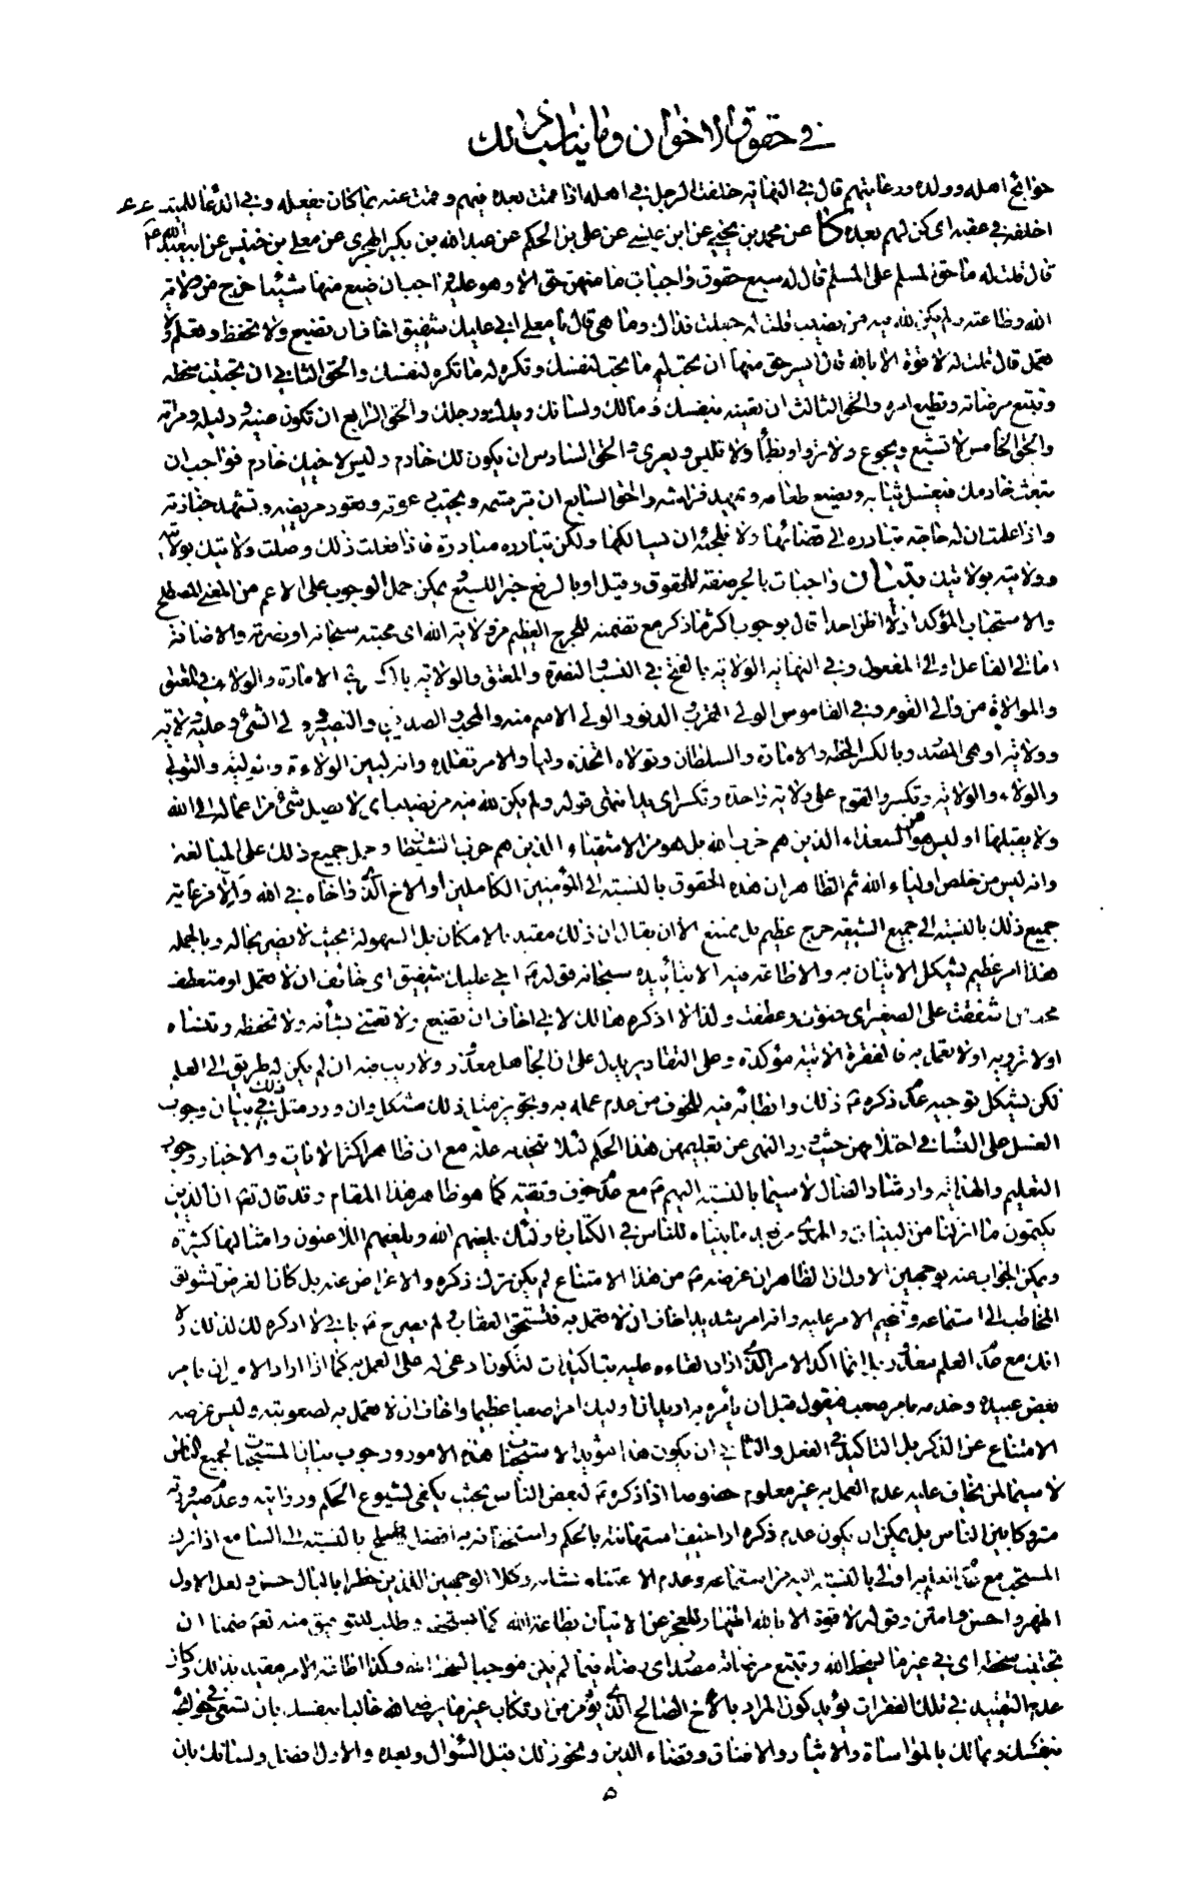 في حقوق الاخوان وما يناسب ذلك
حوائج اهله وولده ورعايتهم قال في النهاية خلفت الرجل في اهله اذا قمت بعده فيهم وقمت عنه بما كان يفعله وفي الدعاء للميت
اخلفه في عقبه اى كن لهم بعده كا عن محمد بن يحيى عن ابن عيسى عن على بن الحكم عن عبد الله بن بكير الهجرى عن معلى بن خنيس عن ابيعبد الله ع
قال قلت له ما حق المسلم على المسلم قال له سبع حقوق واجبات ما منهن حق الا وهو عليه واجب ان ضيع منها شيئا خرج من ولاية
الله وطاعته ولم يكن لله فيه من نصيب قلت له جعلت فداك وما هى قال يا معلى انى عليك شفيق اخاف ان تضيع ولا تحفظ وتعلم ولا
تعمل قال قلت له لا قوة الا بالله قال ايسر حق منها ان تحب له ما تحب لنفسك وتكره له ما تكره لنفسك والحق الثانى ان تجتنب سخطه
وتتبع مرضاته وتطيع امره والحق الثالث ان تعينه بنفسك ومالك ولسانك ويدك ورجلك والحق الرابع ان تكون عينه ودليله ومرآته
والحق الخامس لا تشبع ويجوع ولا تروى ويظمأ ولا تلبس ويعرى والحق السادس ان يكون لك خادم وليس لاخيك خادم فواجب ان
تبعث خادمك فيغسل ثيابه ويصنع طعامه ويمهد فراشه والحق السابع ان تبر قسمه وتجيب دعوته وتعود مريضه وتشهد جنازته
واذا علمت ان له حاجة تبادره الى قضائها ولا تلجئه ان يسألكها ولكن تبادره مبادرة فاذا فعلت ذلك وصلت ولايتك بولايته
وولايته بولايتك بيان واجبات بالجر صفة للحقوق وقيل او بالرفع خبر للسبع ويمكن حمل الوجوب على الاعم من المعنى المصطلح
والاستحباب المؤكد اذ لا اظن احدا قال بوجوب اكثر ما ذكر مع تضمنه للحرج العظيم من ولاية الله اى محبته سبحانه او نصرته والاضافة
اما الى الفاعل او الى المفعول وفي النهاية الولاية بالفتح في النسب والنصرة والمعتق والولاية بالكسر في الامارة والولاء في المعتق
والموالاة من والى القوم وفي القاموس الولى القرب والدنو والولى الاسم منه والمحب والصديق والنصير وولى الشئ وعليه ولاية
وولاية او هى المصدر وبالكسر الخطة والامارة والسلطان وتولاه اتخذه وليا والامر تقلده وانه لبين الولاءة والولية والتولى
والولاء والولاية وتكسر والقوم على ولاية واحدة وتكسر اى يد انتهى قوله ولم يكن لله فيه من نصيب اى لا يصل شئ من اعماله الى الله
ولا يقبلها او ليس هو من السعداء الذين هم حزب الله بل هو من الاشقياء الذين هم حزب الشيطان وحمل جميع ذلك على المبالغة
وانه ليس من خلص اولياء الله ثم الظاهر ان هذه الحقوق بالنسبة الى المؤمنين الكاملين او الاخ الذى واخاه في الله والا فرعاية
جميع ذلك بالنسبة الى جميع الشيعة حرج عظيم بل ممتنع الا ان يقال ان ذلك مقيد بالامكان بل السهولة بحيث لا يضر بحاله وبالجملة
هذا امر عظيم يشكل الاتيان به والاطاعة فيه الا بتأييده سبحانه قوله ع انى عليك شفيق اى خائف ان لا تعمل او متعطف
محب من اشفقت على الصغير اى حنوت وعطفت ولذا لا اذكرها لك لانى اخاف ان تضيع ولا تعتنى بشأنه ولا تحفظه وتنساه
او لا ترويه او لا تعمل به فالفقرة الاتية مؤكدة وعلى التقادير يدل على ان الجاهل معذور ولا ريب فيه ان لم يكن له طريق الى العلم
لكن يشكل توجيه عدم ذكره ع ذلك وابطائه فيه للخوف من عدم عمله به وتجويز مثل ذلك مشكل وان ورد مثل ذلك في بيان وجوب
الغسل على النساء في احتلامهن حيث ورد النهى عن تعليمهن هذا الحكم لئلا يتخذنه علة مع ان ظاهر اكثر الايات والاخبار وجوب
التعليم والهداية وارشاد الضال لا سيما بالنسبة اليهم ع مع عدم خوف وتقية كما هو ظاهر هذا المقام وقد قال تعم ان الذين
يكتمون ما انزلنا من البينات والهدى من بعد ما بيناه للناس في الكتاب اولئك يلعنهم الله ويلعنهم اللاعنون وامثالها كثيرة
ويمكن الجواب عنه بوجهين الاول ان الظاهر ان غرضه ع من هذا الامتناع لم يكن ترك ذكره والاعراض عنه بل كان الغرض تشويق
المخاطب الى استماعه وتفخيم الامر عليه وانه امر شديد اخاف ان لا تعمل به فتستحق العقاب ولم يصرح ع بانى لا اذكره لك لذلك ولا
انك مع عدم العلم معذور بل انما اكد الامر الذى اراد القاءه عليه بتأكيدات لتكون ادعى له على العمل به كما اذا اراد الامير ان يأمر
بعض عبيده وخدمه بامر صعب فيقول قبل ان يأمره به اريد ان اوليك امرا صعبا عظيما واخاف ان لا تعمل به لصعوبته وليس غرضه
الامتناع عن الذكر بل التأكيد في الفعل والثانى ان يكون هذا مؤيدا لاستحباب هذه الامور ووجوب بيان المستحبات لجميع الناس
لا سيما لمن يخاف عليه عدم العمل به غير معلوم خصوصا اذا ذكره ع لبعض الناس بحيث يكفى لشيوع الحكم وروايته وعدم صيرورته
متروكا بين الناس بل يمكن ان يكون عدم ذكره اذا خيف استهانته بالحكم واستخفافه به افضل واصلح بالنسبة الى السامع اذ ترك
المستحب مع عدم العلم به اولى بالنسبة اليه من استماعه وعدم الاعتناء بشأنه وكلا الوجهين اللذين خطرا بالبال حسن ولعل الاول
اظهر واحسن وامتن وقوله لا قوة الا بالله اظهار للعجز عن الاتيان بطاعة الله كما يستحقه وطلب للتوفيق منه تعم ضمنا ان
تجتنب سخطه اى في غير ما يسخط الله وتتبع مرضاته مصدر اى رضاه فيما لم يكن موجبا لسخط الله وكذا اطاعة الامر مقيد بذلك وكان
عدم التقييد في تلك الفقرات يؤيد كون المراد بالاخ الصالح الذى يؤمن من ارتكاب غير ما يرضى الله غالبا بنفسك بان تسعى في حوائجه
بنفسك وبمالك بالمواساة والايثار والانفاق وقضاء الدين ونحو ذلك قبل السؤال وبعده والاول افضل ولسانك بان